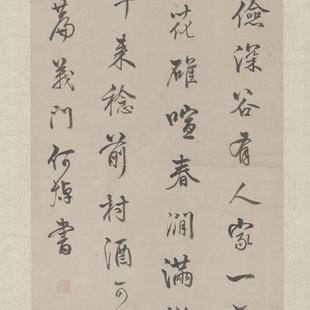 儉深谷有人家一
花碓喧春澗滿
來稔前村酒可
篇義門何焯書